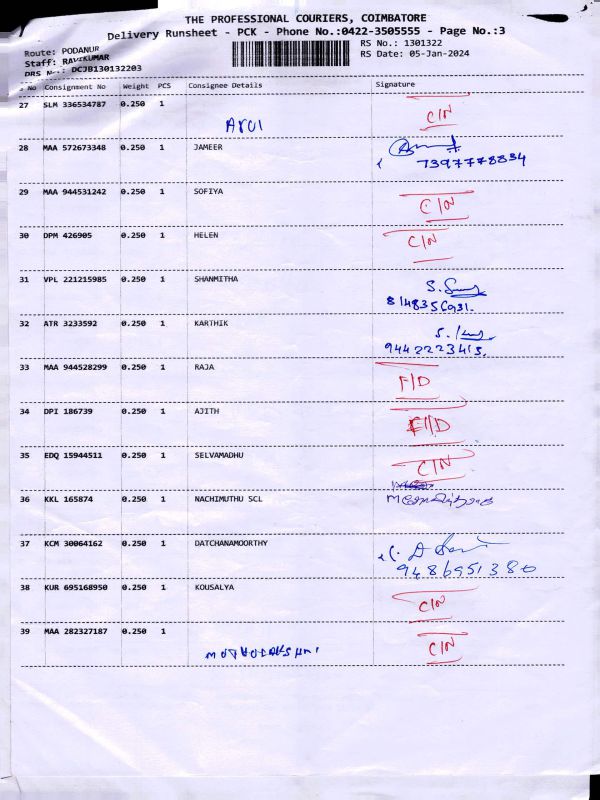 THE PROFESSIONAL COURIERS, COIMBATORE
Delivery Runsheet - PCK - Phone No.:0422-3505555 - Page No.:3
Route: PODANUR
RS No.: 1301322
Staff: RAVIKUMAR
RS Date: 05-Jan-2024
DRS No.: DCJB130132203
No Consignment No Weight PCS Consignee Details Signature
27 SLM 336534787 0.250 1 C/N
28 MAA 572673348 0.250 1 JAMEER
7397778834
29 MAA 944531242 0.250 1 SOFIYA C/N
30 DPM 426905 0.250 1 HELEN C/N
31 VPL 221215985 0.250 1 SHANMITHA
32 ATR 3233592 0.250 1 KARTHIK
9442223413.
33 MAA 944528299 0.250 1 RAJA F/D
34 DPI 186739 0.250 1 AJITH F/D
35 EDQ 15944511 0.250 1 SELVAMADHU C/N
36 KKL 165874 0.250 1 NACHIMUTHU SCL
37 KCM 30064162 0.250 1 DATCHANAMOORTHY
9486951380
38 KUR 695168950 0.250 1 KOUSALYA C/N
39 MAA 282327187 0.250 1 C/N